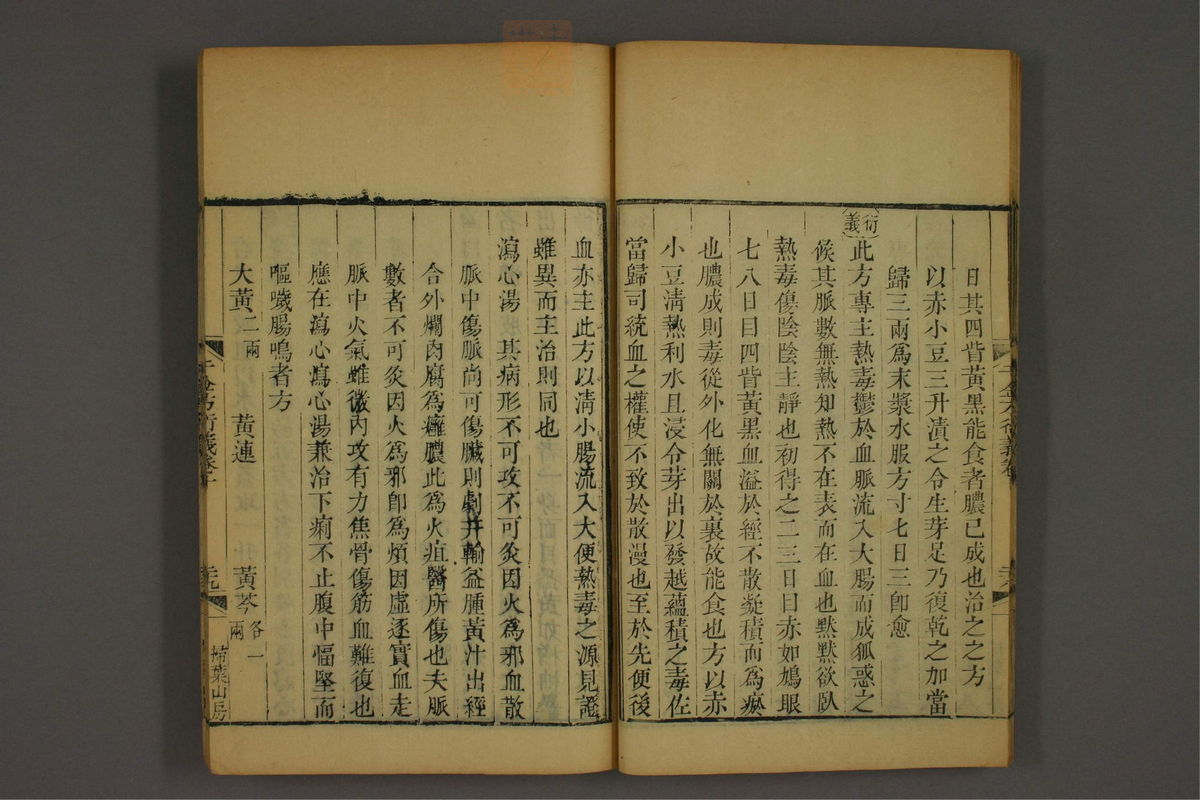 日其四眥黃黑能食者膿已成也治之之方
以赤小豆三升漬之令生芽足乃復乾之加當
歸三兩爲末漿水服方寸七日三卽愈
衍義
此方專主熱毒鬱於血脈流入大腸而成狐惑之
候其脈數無熱知熱不在表而在血也默默欲臥
熱毒傷陰陰主靜也初得之二三日目赤如鳩眼
七八日目四眥黃黑血溢於經不散凝積而爲瘀
也膿成則毒從外化無關於裏故能食也方以赤
小豆淸熱利水且浸令芽出以發越蘊積之毒佐
當歸司統血之權使不致於散漫也至於先便後
血亦主此方以淸小腸流入大便熱毒之源見證
雖異而主治則同也
瀉心湯 其病形不可攻不可灸因火爲邪血散
脈中傷脈尚可傷臟則劇井輸益腫黃汁出經
合外爛肉腐爲癰膿此爲火疽醫所傷也夫脈
數者不可灸因火爲邪卽爲煩因虛逐實血走
脈中火氣雖微內攻有力焦骨傷筋血難復也
應在瀉心瀉心湯兼治下痢不止腹中愊堅而
嘔噦腸鳴者方
大黃二兩 黃連 黃芩各一兩
千金方衍義卷十
掃葉山房